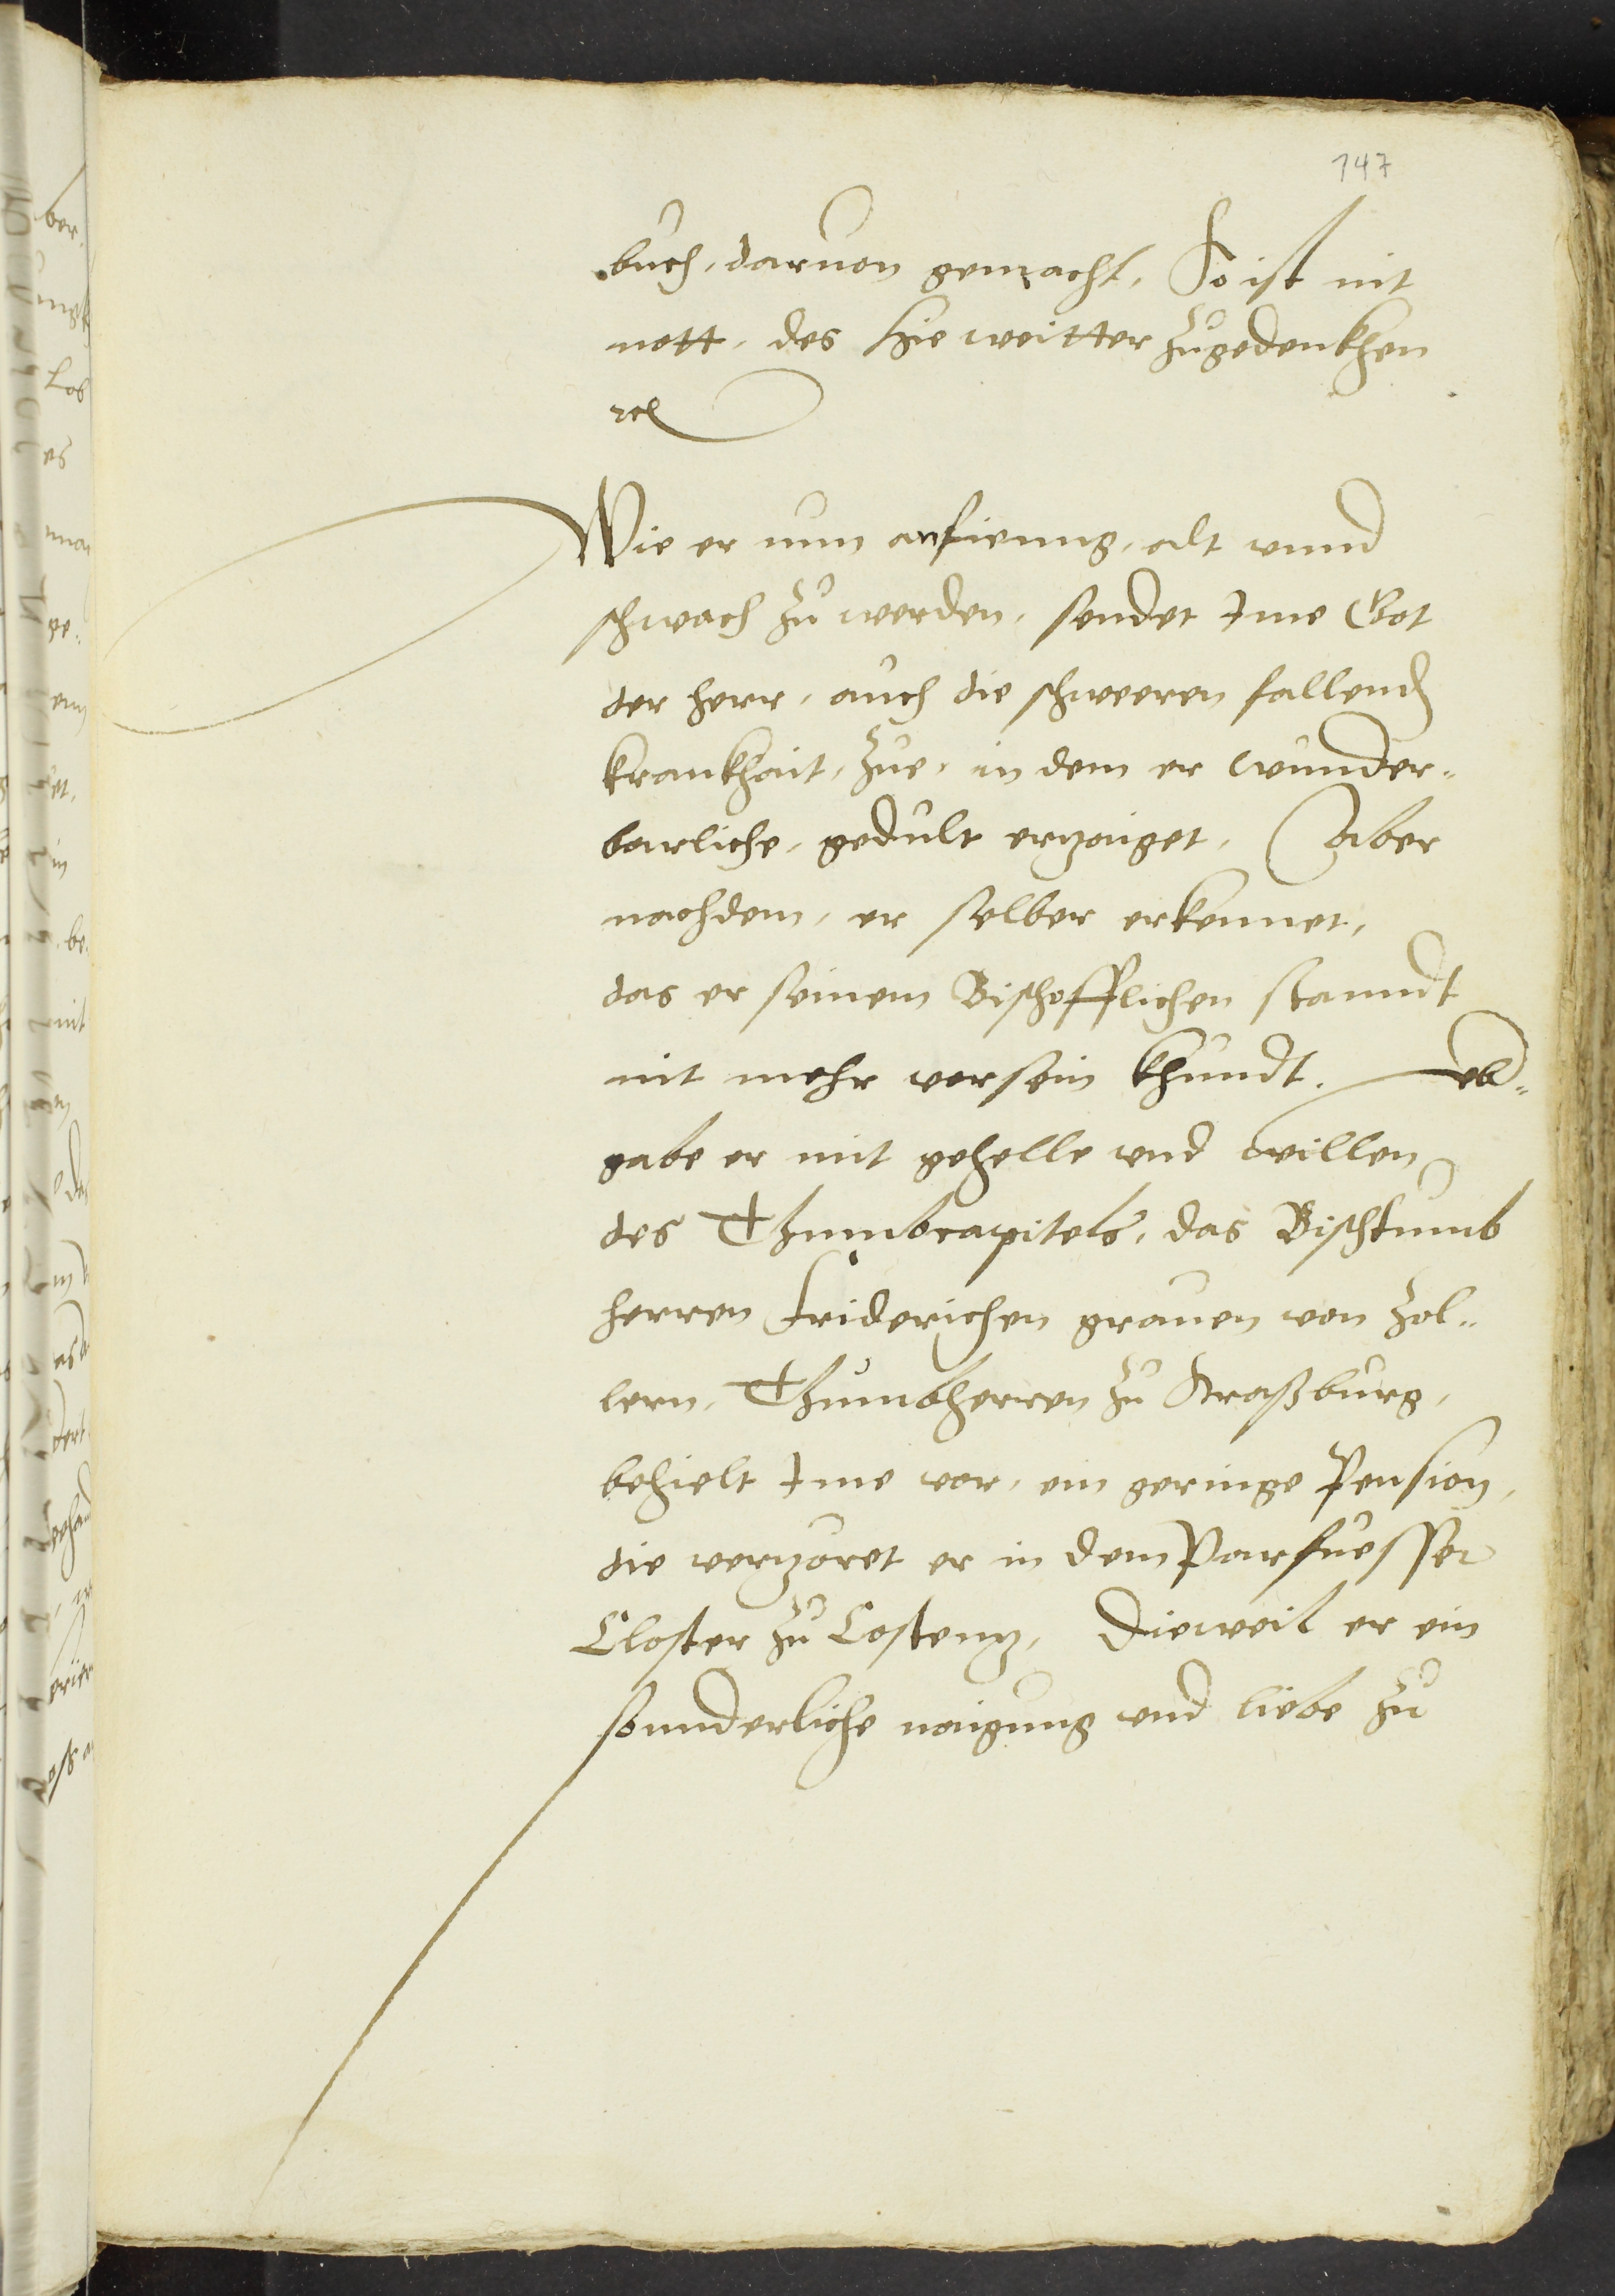 147
buch, daruon gemacht, So ist nit
nott, des hie weitter zugedenkhen
rc
Wie er nun anfienng, alt vnnd
schwach zu werden, sendet Ime Got
der herr, auch die schweeren fallend
krankhait, zue, in dem er wunder-
barliche, gedult erzaiget, Aber
nachdem, er selber erkennet,
das er seinem Bischofflichen stanndt
nit mehr vorsein khundt.
gabe er mit gehelle vnd willen
des Thumbcapitels, das Bischtumb
herren Friderichen grauen von Zol-
lern, Thumbherren zu Straßburg,
behielt Ime vor, ein geringe Pension,
die verzoret er in dem Parfuesser
Closter zu Costenz, Dieweil er ein
sunnderliche naigung vnd liebe zu